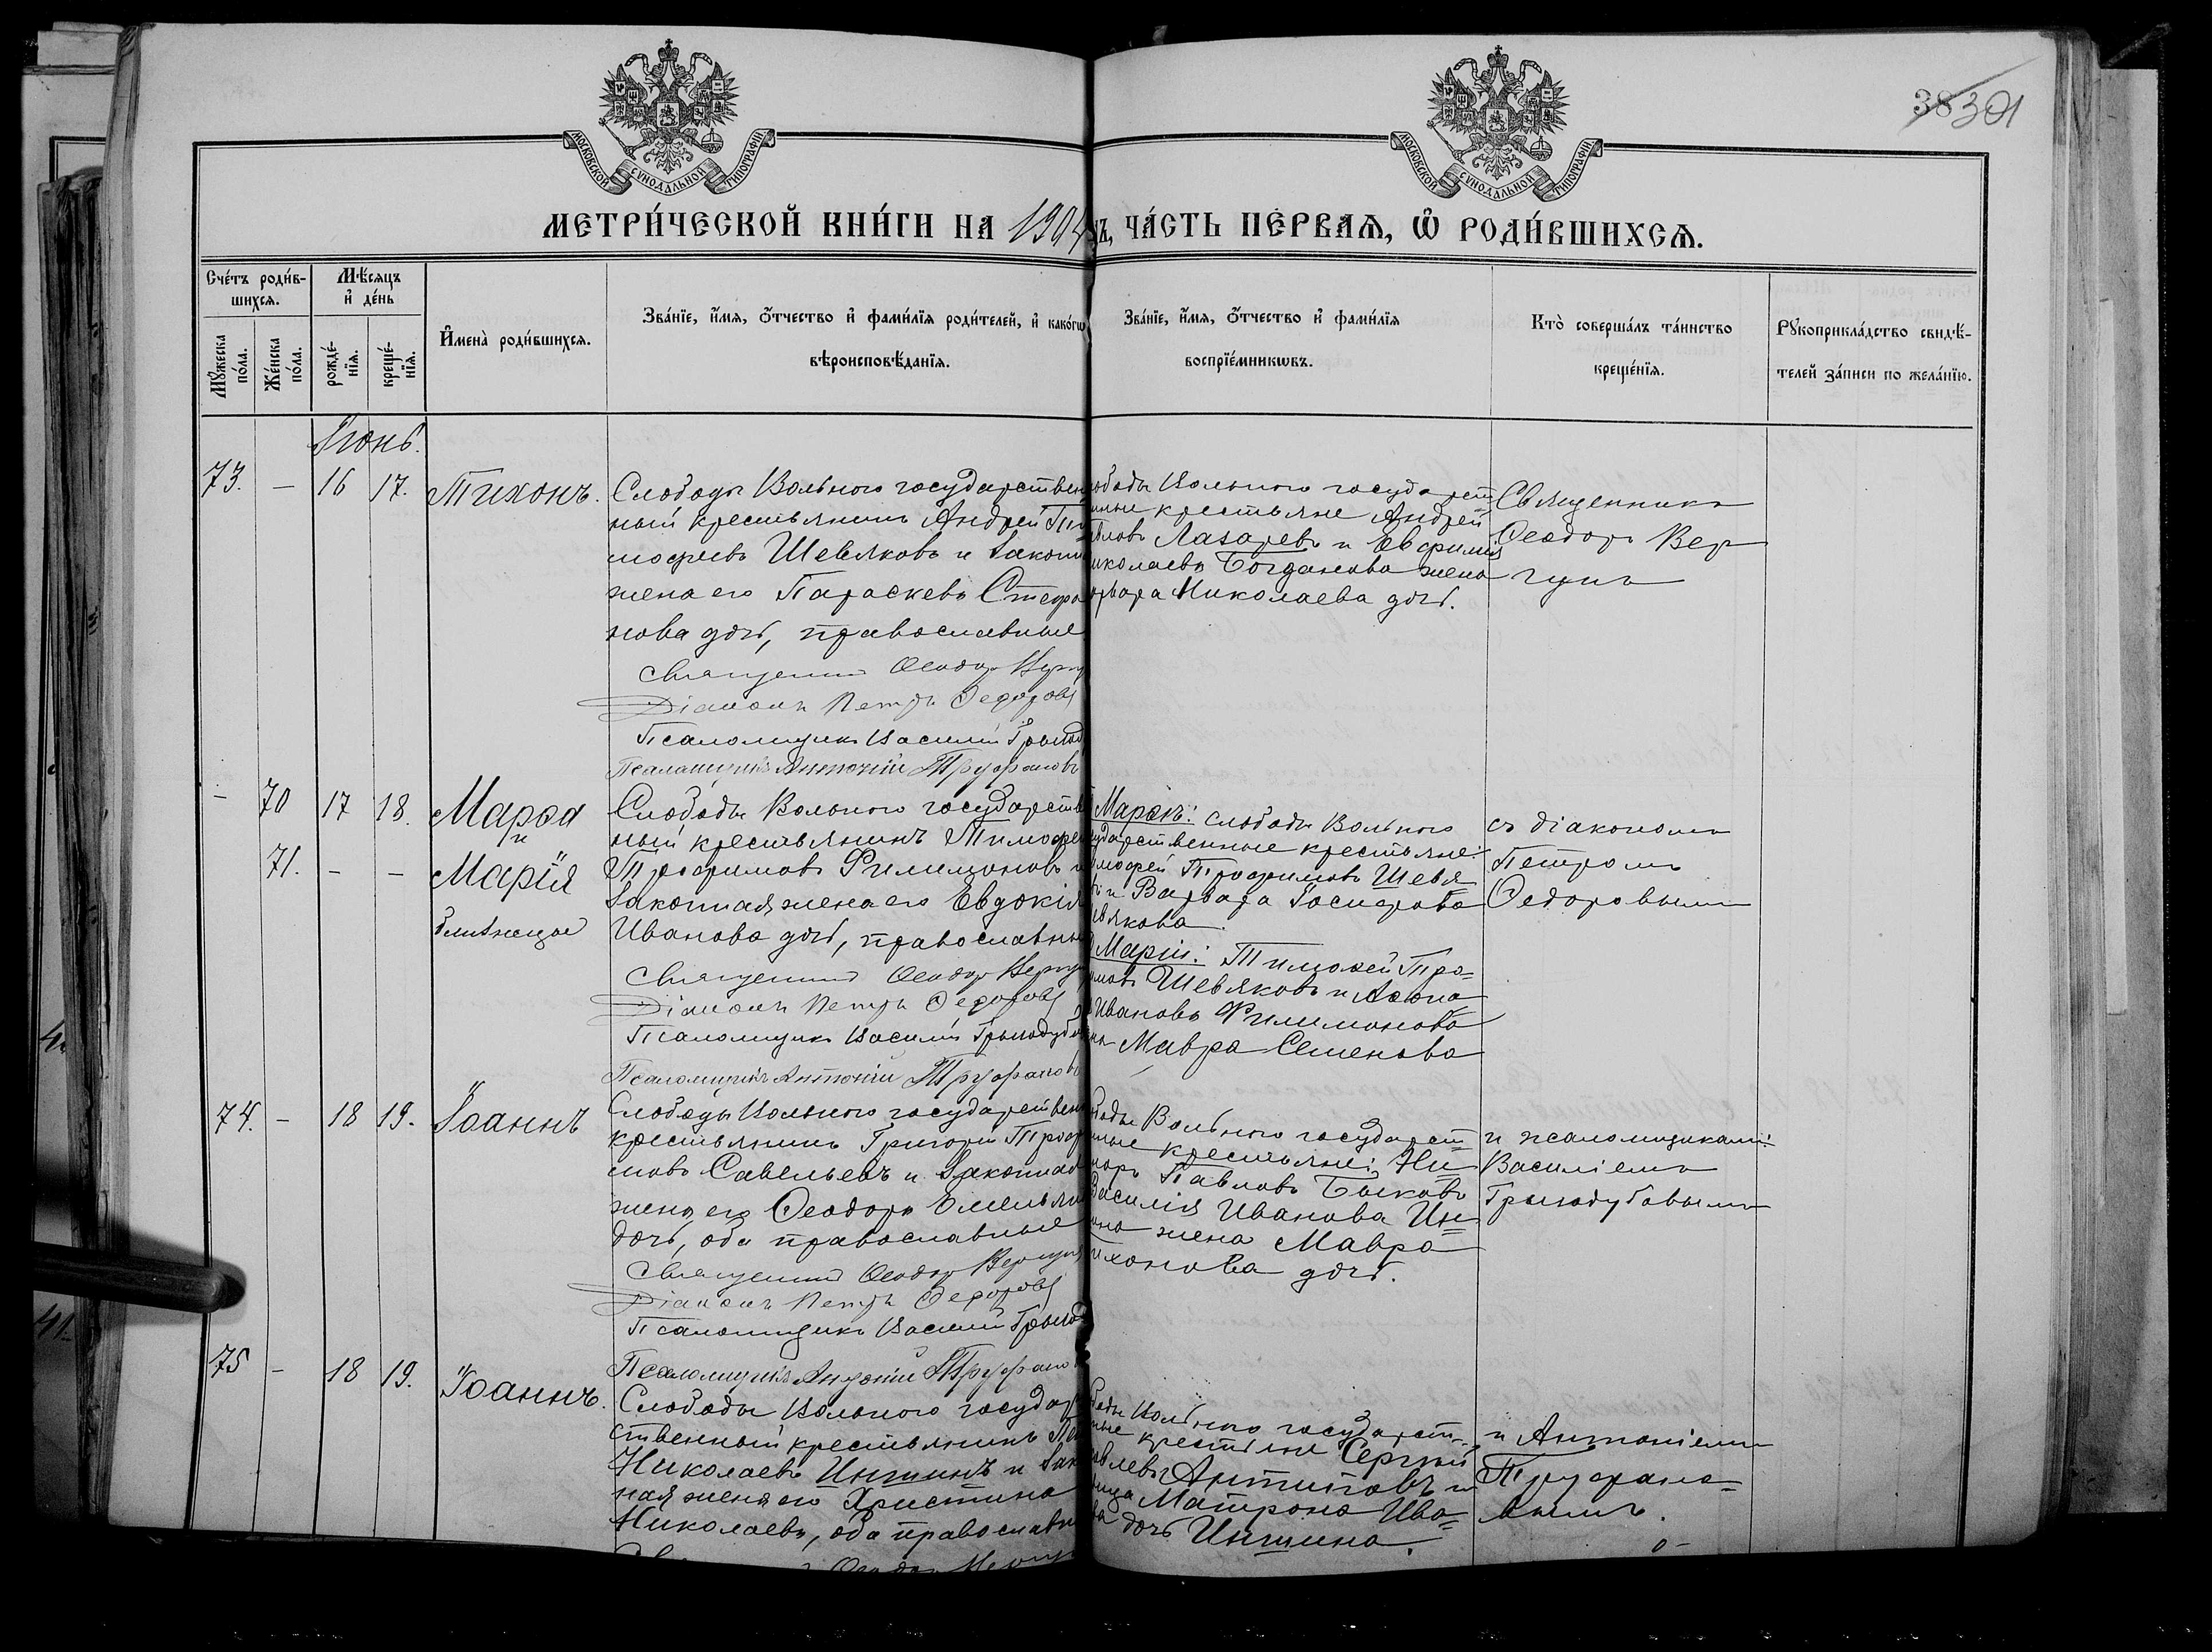 38301
МОСКОВСКОЙ СѴНОДАЛЬНОЙ ТИПОГРАФІИ
МОСКОВСКОЙ СѴНОДАЛЬНОЙ ТИПОГРАФІИ
МЕТРИ́ЧЕСКОЙ КНИ́ГИ НА 1904
ЧА́СТЬ ПЕ́РВАѦ, Ѡ҆ РОДИ́ВШИХСѦ.
Сче́тъ роди́в-
шихсѧ.
Мѣ́сѧцъ
и҆ де́нь
Мꙋ́жеска
по́ла.
Же́нска
по́ла.
рожде́-
нїѧ.
креще́-
нїѧ.
И҆мена̀ роди́вшихсѧ.
Зва́нїе, и҆́мѧ, ѻ҆́тчество и҆ фами́лїѧ роди́телей, и҆ како́гѡ
вѣроисповѣ́данїѧ.
Зва́нїе, и҆́мѧ, ѻ҆́тчество и҆ фами́лїѧ
воспрїе́мникѡвъ.
Кто̀ соверша́лъ та́инство
креще́нїѧ.
Рꙋкоприкла́дство свидѣ́-
телей за́писи по жела́нїю.
Іюнь.
73. – 16 17. Тихонъ.
Слободы Вольного государствен
ный крестьянинъ Андрей Ти
мофеевъ Шевяковъ и закон
жена его Параскева Стефа
нова дочь, православные
Священникъ Ѳеодоръ
Діаконъ Петръ Ѳедоровъ
Псаломщикъ Василій
Псаломщикъ Антоній Труфановъ
ободы Вольного государст
нные крестьяне Андрей
Лазаревъ и Евфимія
иколаева Богданова жена
Николаева дочь.
Священникъ
Ѳеодоръ Вер
гунъ
– 70 17 18. Марѳа
и
71. – – Марія
близнецы
Слободы Вольного государстве
ный крестьянинъ Тимофей
Трофимовъ Филимоновъ и
законная жена его Евдокія
Иванова дочь, православны
Священникъ Ѳеодоръ
Діаконъ Петръ Ѳедоровъ
Псаломщикъ Василій
Псаломщикъ Антоній Труфановъ
Марѳы: слободы Вольного
ударственные крестьяне:
мофей Трофимовъ Шевя
и Варвара Іосифова
евякова.
Маріи: Тимоѳей Тро-
мовъ Шевяковъ и
Иванова Филимонова
Мавра Семенова
съ діакономъ
Петромъ
Ѳедоровымъ
74. – 18 19. Іоаннъ
Слободы Вольного государствен
крестьянинъ Григорій Трофи
мовъ Савельевъ и законная
жена его Ѳеодора Емельян
дочь, оба православные
Священникъ Ѳеодоръ Вергунъ
Діаконъ Петръ Ѳедоровъ
Псаломщикъ Василій
Псаломщикъ Антоній Труфано
боды Вольного государст
нные крестьяне: Ни=
Павловъ Быковъ
Василія Иванова Ин=
ина жена Мавра
ихонова дочь.
и псаломщиками:
Василіемъ
Грызодубовымъ
75 – 18 19. Іоаннъ.
Слободы Вольного государ
ственный крестьянинъ
Николаевъ Иншинъ и зак
ная жена его Христина
Николаева, оба православн
боды Вольного государст-
нные крестьяне Сергій
Антиповъ и
Матрона Ива=
ва дочь Иншина.
и Антоніемъ
Труфано=
вымъ.